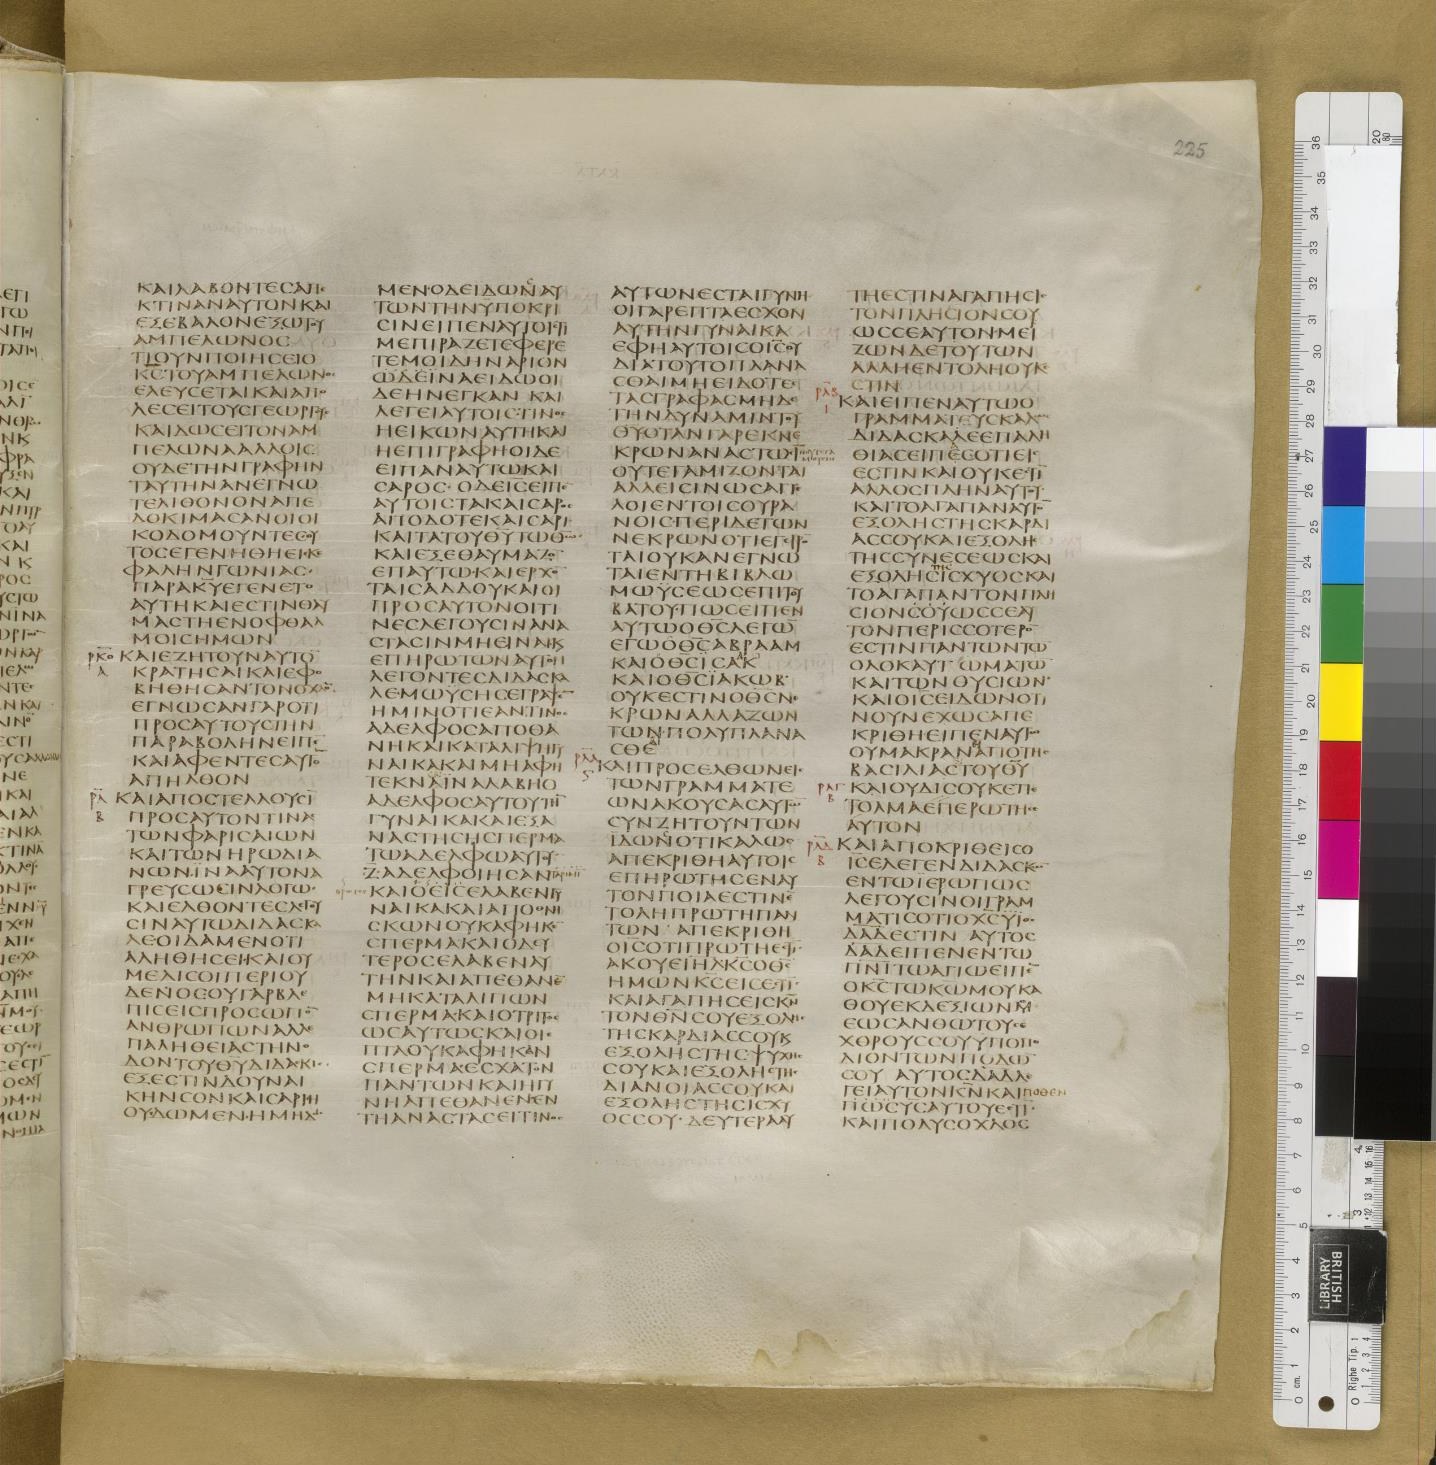 225
ΚΑΙΛΑΒΟΝΤΕϹΑΠΕ
ΚΤΙΝΑΝΑΥΤΟΝΚΑΙ
ΕΞΕΒΑΛΟΝΕΞΩΤΟΥ
ΑΜΠΕΛΩΝΟϹ
ΤΙΟΥΝΠΟΙΗϹΕΙΟ
ΚϹΤΟΥΑΜΠΕΛΩΝΟϹ
ΕΛΕΥϹΕΤΑΙΚΑΙΑΠΟ
ΛΕϹΕΙΤΟΥϹΓΕΩΡΓΟΥϹ
ΚΑΙΔΩϹΕΙΤΟΝΑΜ
ΠΕΛΩΝΑΑΛΛΟΙϹ
ΟΥΔΕΤΗΝΓΡΑΦΗΝ
ΤΑΥΤΗΝΑΝΕΓΝΩ
ΤΕΛΙΘΟΝΟΝΑΠΕ
ΔΟΚΙΜΑϹΑΝΟΙΟΙ
ΚΟΔΟΜΟΥΝΤΕϹΟΥ
ΤΟϹΕΓΕΝΗΘΗΕΙϹΚΕ
ΦΑΛΗΝΓΩΝΙΑϹ
ΠΑΡΑΚΥΕΓΕΝΕΤΟ
ΑΥΤΗΚΑΙΕϹΤΙΝΘΑΥ
ΜΑϹΤΗΕΝΟΦΘΑΛ
ΜΟΙϹΗΜΩΝ
ΚΑΙΕΖΗΤΟΥΝΑΥΤΟ
ΚΡΑΤΗϹΑΙΚΑΙΕΦΟ
ΒΗΘΗϹΑΝΤΟΝΟΧΛΟΝ
ΕΓΝΩϹΑΝΓΑΡΟΤΙ
ΠΡΟϹΑΥΤΟΥϹΤΗΝ
ΠΑΡΑΒΟΛΗΝΕΙΠΕ
ΚΑΙΑΦΕΝΤΕϹΑΥΤΟ
ΑΠΗΛΘΟΝ
ΚΑΙΑΠΟϹΤΕΛΛΟΥϹΙ
ΠΡΟϹΑΥΤΟΝΤΙΝΑϹ
ΤΩΝΦΑΡΙϹΑΙΩΝ
ΚΑΙΤΩΝΗΡΩΔΙΑ
ΝΩΝΙΝΑΑΥΤΟΝΑ
ΓΡΕΥϹΩϹΙΝΛΟΓΩ
ΚΑΙΕΛΘΟΝΤΕϹΛΕΓΟΥ
ϹΙΝΑΥΤΩΔΙΔΑϹΚΑ
ΛΕΟΙΔΑΜΕΝΟΤΙ
ΑΛΗΘΗϹΕΙΚΑΙΟΥ
ΜΕΛΙϹΟΙΠΕΡΙΟΥ
ΔΕΝΟϹΟΥΓΑΡΒΛΕ
ΠΙϹΕΙϹΠΡΟϹΩΠΟ
ΑΝΘΡΩΠΩΝΑΛΛΕ
ΠΑΛΗΘΕΙΑϹΤΗΝΟ
ΔΟΝΤΟΥΘΥΔΙΔΑϹΚΙϹ
ΕΞΕϹΤΙΝΔΟΥΝΑΙ
ΚΗΝϹΟΝΚΑΙϹΑΡΙΗ
ΟΥΔΩΜΕΝΗΜΗΔΩ
ΜΕΝΟΔΕΙΔΩΝΑΥ
ΤΩΝΤΗΝΥΠΟΚΡΙ
ϹΙΝΕΙΠΕΝΑΥΤΟΙϹΤΙ
ΜΕΠΙΡΑΖΕΤΕΦΕΡΕ
ΤΕΜΟΙΔΗΝΑΡΙΟΝ
ΩΔΕΙΝΑΕΙΔΩΟΙ
ΔΕΗΝΕΓΚΑΝ ΚΑΙ
ΛΕΓΕΙΑΥΤΟΙϹΤΙΝΟϹ
ΗΕΙΚΩΝΑΥΤΗΚΑΙ
ΗΕΠΙΓΡΑΦΗΟΙΔΕ
ΕΙΠΑΝΑΥΤΩΚΑΙ
ϹΑΡΟϹ ΟΔΕΙϹΕΙΠΕ
ΑΥΤΟΙϹΤΑΚΑΙϹΑΡΟϹ
ΑΠΟΔΟΤΕΚΑΙϹΑΡΙ
ΚΑΙΤΑΤΟΥΘΥΤΩΘΩ
ΚΑΙΕΞΕΘΑΥΜΑΖΟ
ΕΠΑΥΤΩΚΑΙΕΡΧΟ
ΤΑΙϹΑΔΔΟΥΚΑΙΟΙ
ΠΡΟϹΑΥΤΟΝΟΙΤΙ
ΝΕϹΛΕΓΟΥϹΙΝΑΝΑ
ϹΤΑϹΙΝΜΗΕΙΝΑΙΚ
ΕΠΗΡΩΤΩΝΑΥΤΟΝ
ΛΕΓΟΝΤΕϹΔΙΔΑϹΚΑ
ΛΕΜΩΥϹΗϹΕΓΡΑΨΕ
ΗΜΙΝΟΤΙΕΑΝΤΙΝΟϹ
ΑΔΕΛΦΟϹΑΠΟΘΑ
ΝΗΚΑΙΚΑΤΑΛΙΨΗΓΥ
ΝΑΙΚΑΚΑΙΜΗΑΦΗ
ΤΕΚΝΑΙΝΑΛΑΒΗΟ
ΑΔΕΛΦΟϹΑΥΤΟΥΤΗ
ΓΥΝΑΙΚΑΚΑΙΕΞΑ
ΝΑϹΤΗϹΗϹΠΕΡΜΑ
ΤΩΑΔΕΛΦΩΑΥΤΟΥ
ΖΑΔΕΛΦΟΙΗϹΑΝ
ΚΑΙΟΕΙϹΕΛΑΒΕΝΓΥ
ΝΑΙΚΑΚΑΙΑΠΟΘΝΗ
ϹΚΩΝΟΥΚΑΦΗΚΕ
ϹΠΕΡΜΑΚΑΙΟΔΕΥ
ΤΕΡΟϹΕΛΑΒΕΝΑΥ
ΤΗΝΚΑΙΑΠΕΘΑΝΕ
ΜΗΚΑΤΑΛΙΠΩΝ
ϹΠΕΡΜΑΚΑΙΟΤΡΙΤΟϹ
ΩϹΑΥΤΩϹΚΑΙΟΙ
ΠΤΑΟΥΚΑΦΗΚΑΝ
ϹΠΕΡΜΑΕϹΧΑΤΟΝ
ΠΑΝΤΩΝΚΑΙΗΓΥ
ΝΗΑΠΕΘΑΝΕΝΕΝ
ΤΗΑΝΑϹΤΑϹΕΙΤΙΝΟϹ
ΑΥΤΩΝΕϹΤΑΙΓΥΝΗ
ΟΙΓΑΡΕΠΤΑΕϹΧΟΝ
ΑΥΤΗΝΓΥΝΑΙΚΑ
ΕΦΗΑΥΤΟΙϹΟΙϹΟΥ
ΔΙΑΤΟΥΤΟΠΛΑΝΑ
ϹΘΑΙΜΗΕΙΔΟΤΕϹ
ΤΑϹΓΡΑΦΑϹΜΗΔΕ
ΤΗΝΔΥΝΑΜΙΝΤΟΥ
ΘΥΟΤΑΝΓΑΡΕΚΝΕ
ΚΡΩΝΑΝΑϹΤΩϹΙ
ΟΥΤΕΓΑΜΙΖΟΝΤΑΙ
ΑΛΛΕΙϹΙΝΩϹΑΓΓΕ
ΛΟΙΕΝΤΟΙϹΟΥΡΑ
ΝΟΙϹΠΕΡΙΔΕΤΩΝ
ΝΕΚΡΩΝΟΤΙΕΓΕΙΡΟ
ΤΑΙΟΥΚΑΝΕΓΝΩ
ΤΑΙΕΝΤΗΒΙΒΛΩ
ΜΩΥϹΕΩϹΕΠΙΤΟΥ
ΒΑΤΟΥΠΩϹΕΙΠΕΝ
ΑΥΤΩΟΘϹΛΕΓΩ
ΕΓΩΟΘϹΑΒΡΑΑΜ
ΚΑΙΟΘϹΙϹΑΚ
ΚΑΙΟΘϹΙΑΚΩΒ
ΟΥΚΕϹΤΙΝΟΘϹΝΕ
ΚΡΩΝΑΛΛΑΖΩΝ
ΤΩΝΠΟΛΥΠΛΑΝΑ
ϹΘΕ
ΚΑΙΠΡΟϹΕΛΘΩΝΕΙϹ
ΤΩΝΓΡΑΜΜΑΤΕ
ΩΝΑΚΟΥϹΑϹΑΥΤΩ
ϹΥΝΖΗΤΟΥΝΤΩΝ
ΙΔΩΝΟΤΙΚΑΛΩϹ
ΑΠΕΚΡΙΘΗΑΥΤΟΙϹ
ΕΠΗΡΩΤΗϹΕΝΑΥ
ΤΟΝΠΟΙΑΕϹΤΙΝΕ
ΤΟΛΗΠΡΩΤΗΠΑΝ
ΤΩΝ ΑΠΕΚΡΙΘΗ
ΟΙϹΟΤΙΠΡΩΤΗΕϹΤΙ
ΑΚΟΥΕΙΗΛΚϹΟΘϹ
ΗΜΩΝΚϹΕΙϹΕϹΤΙ
ΚΑΙΑΓΑΠΗϹΕΙϹΚΝ
ΤΟΝΘΝϹΟΥΕΞΟΛΗϹ
ΤΗϹΚΑΡΔΙΑϹϹΟΥΚ
ΕΞΟΛΗϹΤΗϹΨΥΧΗϹ
ϹΟΥΚΑΙΕΞΟΛΗϹΤΗϹ
ΔΙΑΝΟΙΑϹϹΟΥΚΑΙ
ΕΞΟΛΗϹΤΗϹΙϹΧΥ
ΟϹϹΟΥ ΔΕΥΤΕΡΑΑΥ
ΤΗΕϹΤΙΝΑΓΑΠΗϹΙϹ
ΤΟΝΠΛΗϹΙΟΝϹΟΥ
ΩϹϹΕΑΥΤΟΝΜΕΙ
ΖΩΝΔΕΤΟΥΤΩΝ
ΑΛΛΗΕΝΤΟΛΗΟΥΚΕ
ϹΤΙΝ
ΚΑΙΕΙΠΕΝΑΥΤΩΟ
ΓΡΑΜΜΑΤΕΥϹΚΑΛΩϹ
ΔΙΔΑϹΚΑΛΕΕΠΑΛΗ
ΘΙΑϹΕΙΠΕϹΟΤΙΕΙϹ
ΕϹΤΙΝΚΑΙΟΥΚΕϹΤΙ
ΑΛΛΟϹΠΛΗΝΑΥΤΟΥ
ΚΑΙΤΟΑΓΑΠΑΝΑΥΤΟ
ΕΞΟΛΗϹΤΗϹΚΑΡΔΙ
ΑϹϹΟΥΚΑΙΕΞΟΛΗϹ
ΤΗϹϹΥΝΕϹΕΩϹΚΑΙ
ΕΞΟΛΗϹΙϹΧΥΟϹΚΑΙ
ΤΟΑΓΑΠΑΝΤΟΝΠΛΗ
ϹΙΟΝϹΟΥΩϹϹΕΑΥ
ΤΟΝΠΕΡΙϹϹΟΤΕΡΟ
ΕϹΤΙΝΠΑΝΤΩΝΤΩ
ΟΛΟΚΑΥΤΩΜΑΤΩ
ΚΑΙΤΩΝΘΥϹΙΩΝ
ΚΑΙΟΙϹΕΙΔΩΝΟΤΙ
ΝΟΥΝΕΧΩϹΑΠΕ
ΚΡΙΘΗΕΙΠΕΝΑΥΤΩ
ΟΥΜΑΚΡΑΝΑΠΟΤΗϹ
ΒΑϹΙΛΙΑϹΤΟΥΘΥ
ΚΑΙΟΥΔΙϹΟΥΚΕΤΙ
ΤΟΛΜΑΕΠΕΡΩΤΗϹΕ
ΑΥΤΟΝ
ΚΑΙΑΠΟΚΡΙΘΕΙϹΟ
ΙϹΕΛΕΓΕΝΔΙΔΑϹΚΩ
ΕΝΤΩΙΕΡΩΠΩϹ
ΛΕΓΟΥϹΙΝΟΙΓΡΑΜ
ΜΑΤΙϹΟΤΙΟΧϹΥΙΟϹ
ΔΑΔΕϹΤΙΝ ΑΥΤΟϹ
ΔΑΔΕΙΠΕΝΕΝΤΩ
ΠΝΙΤΩΑΓΙΩΕΙΠΕ
ΟΚϹΤΩΚΩΜΟΥΚΑ
ΘΟΥΕΚΔΕΞΙΩΝΜΟΥ
ΕΩϹΑΝΘΩΤΟΥϹΕ
ΧΘΡΟΥϹϹΟΥΥΠΟΠΟ
ΔΙΟΝΤΩΝΠΟΔΩ
ϹΟΥ ΑΥΤΟϹΔΑΔΛΕ
ΓΕΙΑΥΤΟΝΚΝΚΑΙΠΟΘΕΝ
ΠΩϹΥϹΑΥΤΟΥΕϹΤΙ
ΚΑΙΠΟΛΥϹΟΧΛΟϹ
BRITISH
LIBRARY
Righe Tip. 1
cm.